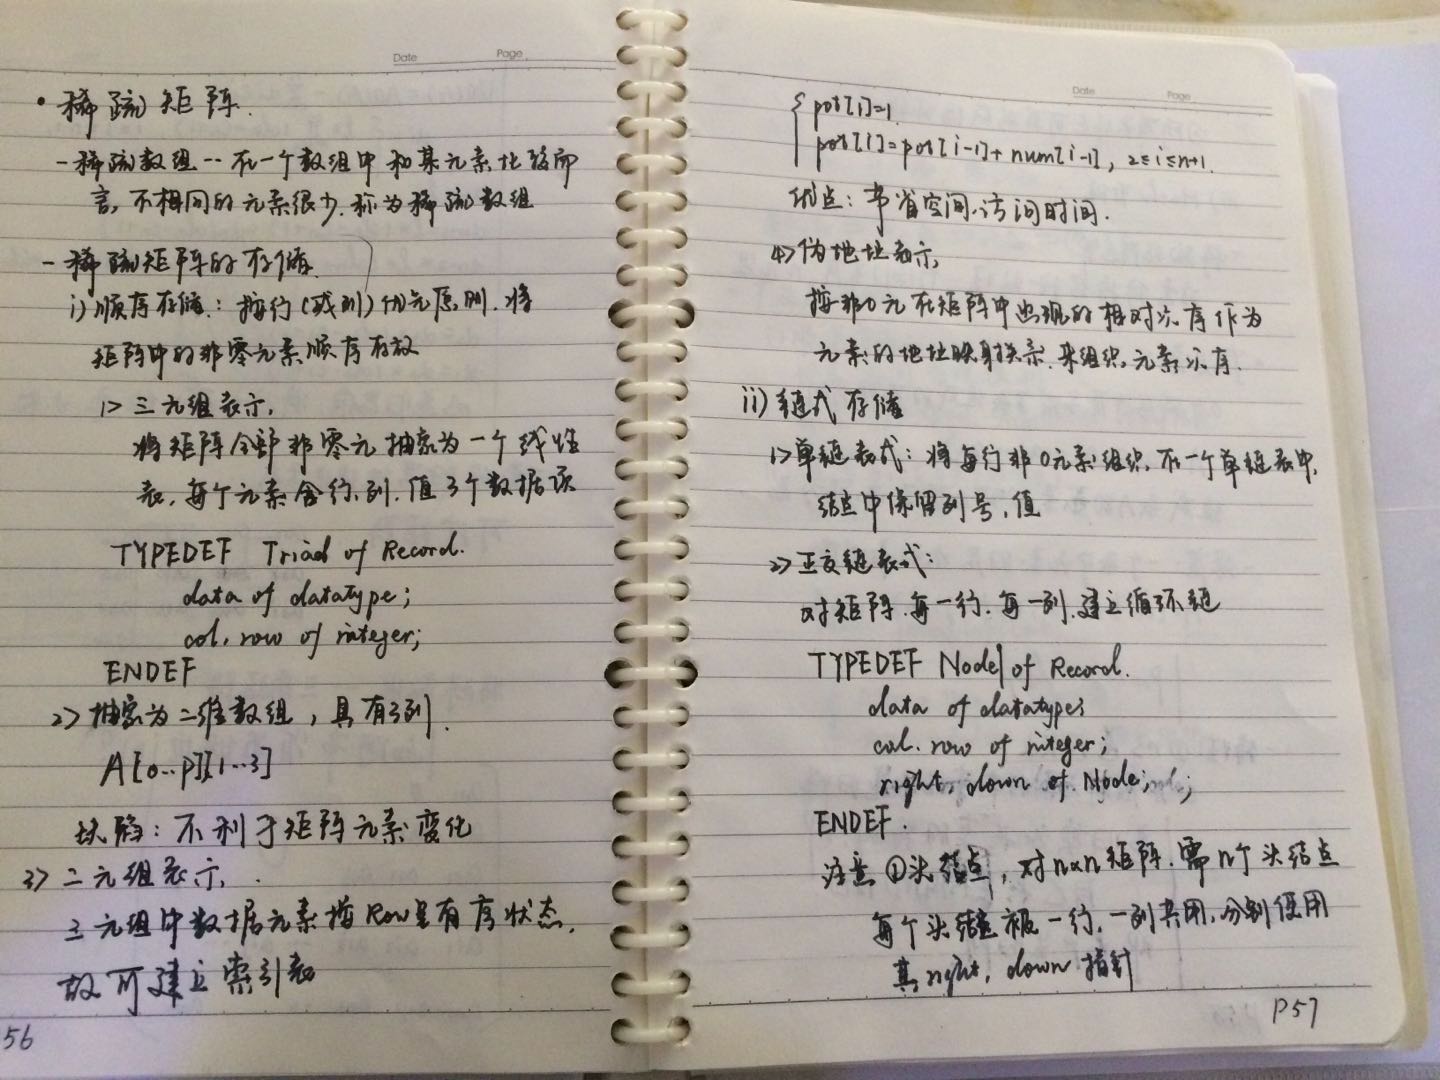 Date Page
• 稀疏矩阵.
- 稀疏数组 -- 在一个数组中和某元素比较而
言,不相同的元素很少.称为稀疏数组
- 稀疏矩阵的存储.
i) 顺序存储.: 按行(或列)优先原则.将
矩阵中的非零元素顺序存放
1> 三元组表示.
将矩阵全部非零元抽象为一个线性
表,每个元素含行.列.值3个数据项
TYPEDEF Triad of Record.
data of datatype;
col. row of integer;
ENDEF
2> 抽象为二维数组,具有3列.
A[0..p][1..3]
缺陷: 不利于矩阵元素变化
3> 二元组表示.
三元组中数据元素按Row呈有序状态.
故可建立索引表
56
Date Page
{ pot[1]=1
pot[i]=pot[i-1]+num[i-1], 2≤i≤n+1.
优点: 节省空间.访问时间.
4> 伪地址表示.
按非0元在矩阵中出现的相对次序作为
元素的地址映射关系.来组织元素次序.
ii) 链式存储
1> 单链表式: 将每行非0元素组织.在一个单链表中,
结点中保留列号,值
2> 正交链表式:
对矩阵.每一行.每一列.建立循环链
TYPEDEF Node of Record.
data of datatype;
col. row of integer;
right, down of Node;
ENDEF.
注意 ①头结点,对n×n矩阵.需n个头结点
每个头结点被一行.一列共用,分别使用
其right, down指针
P57